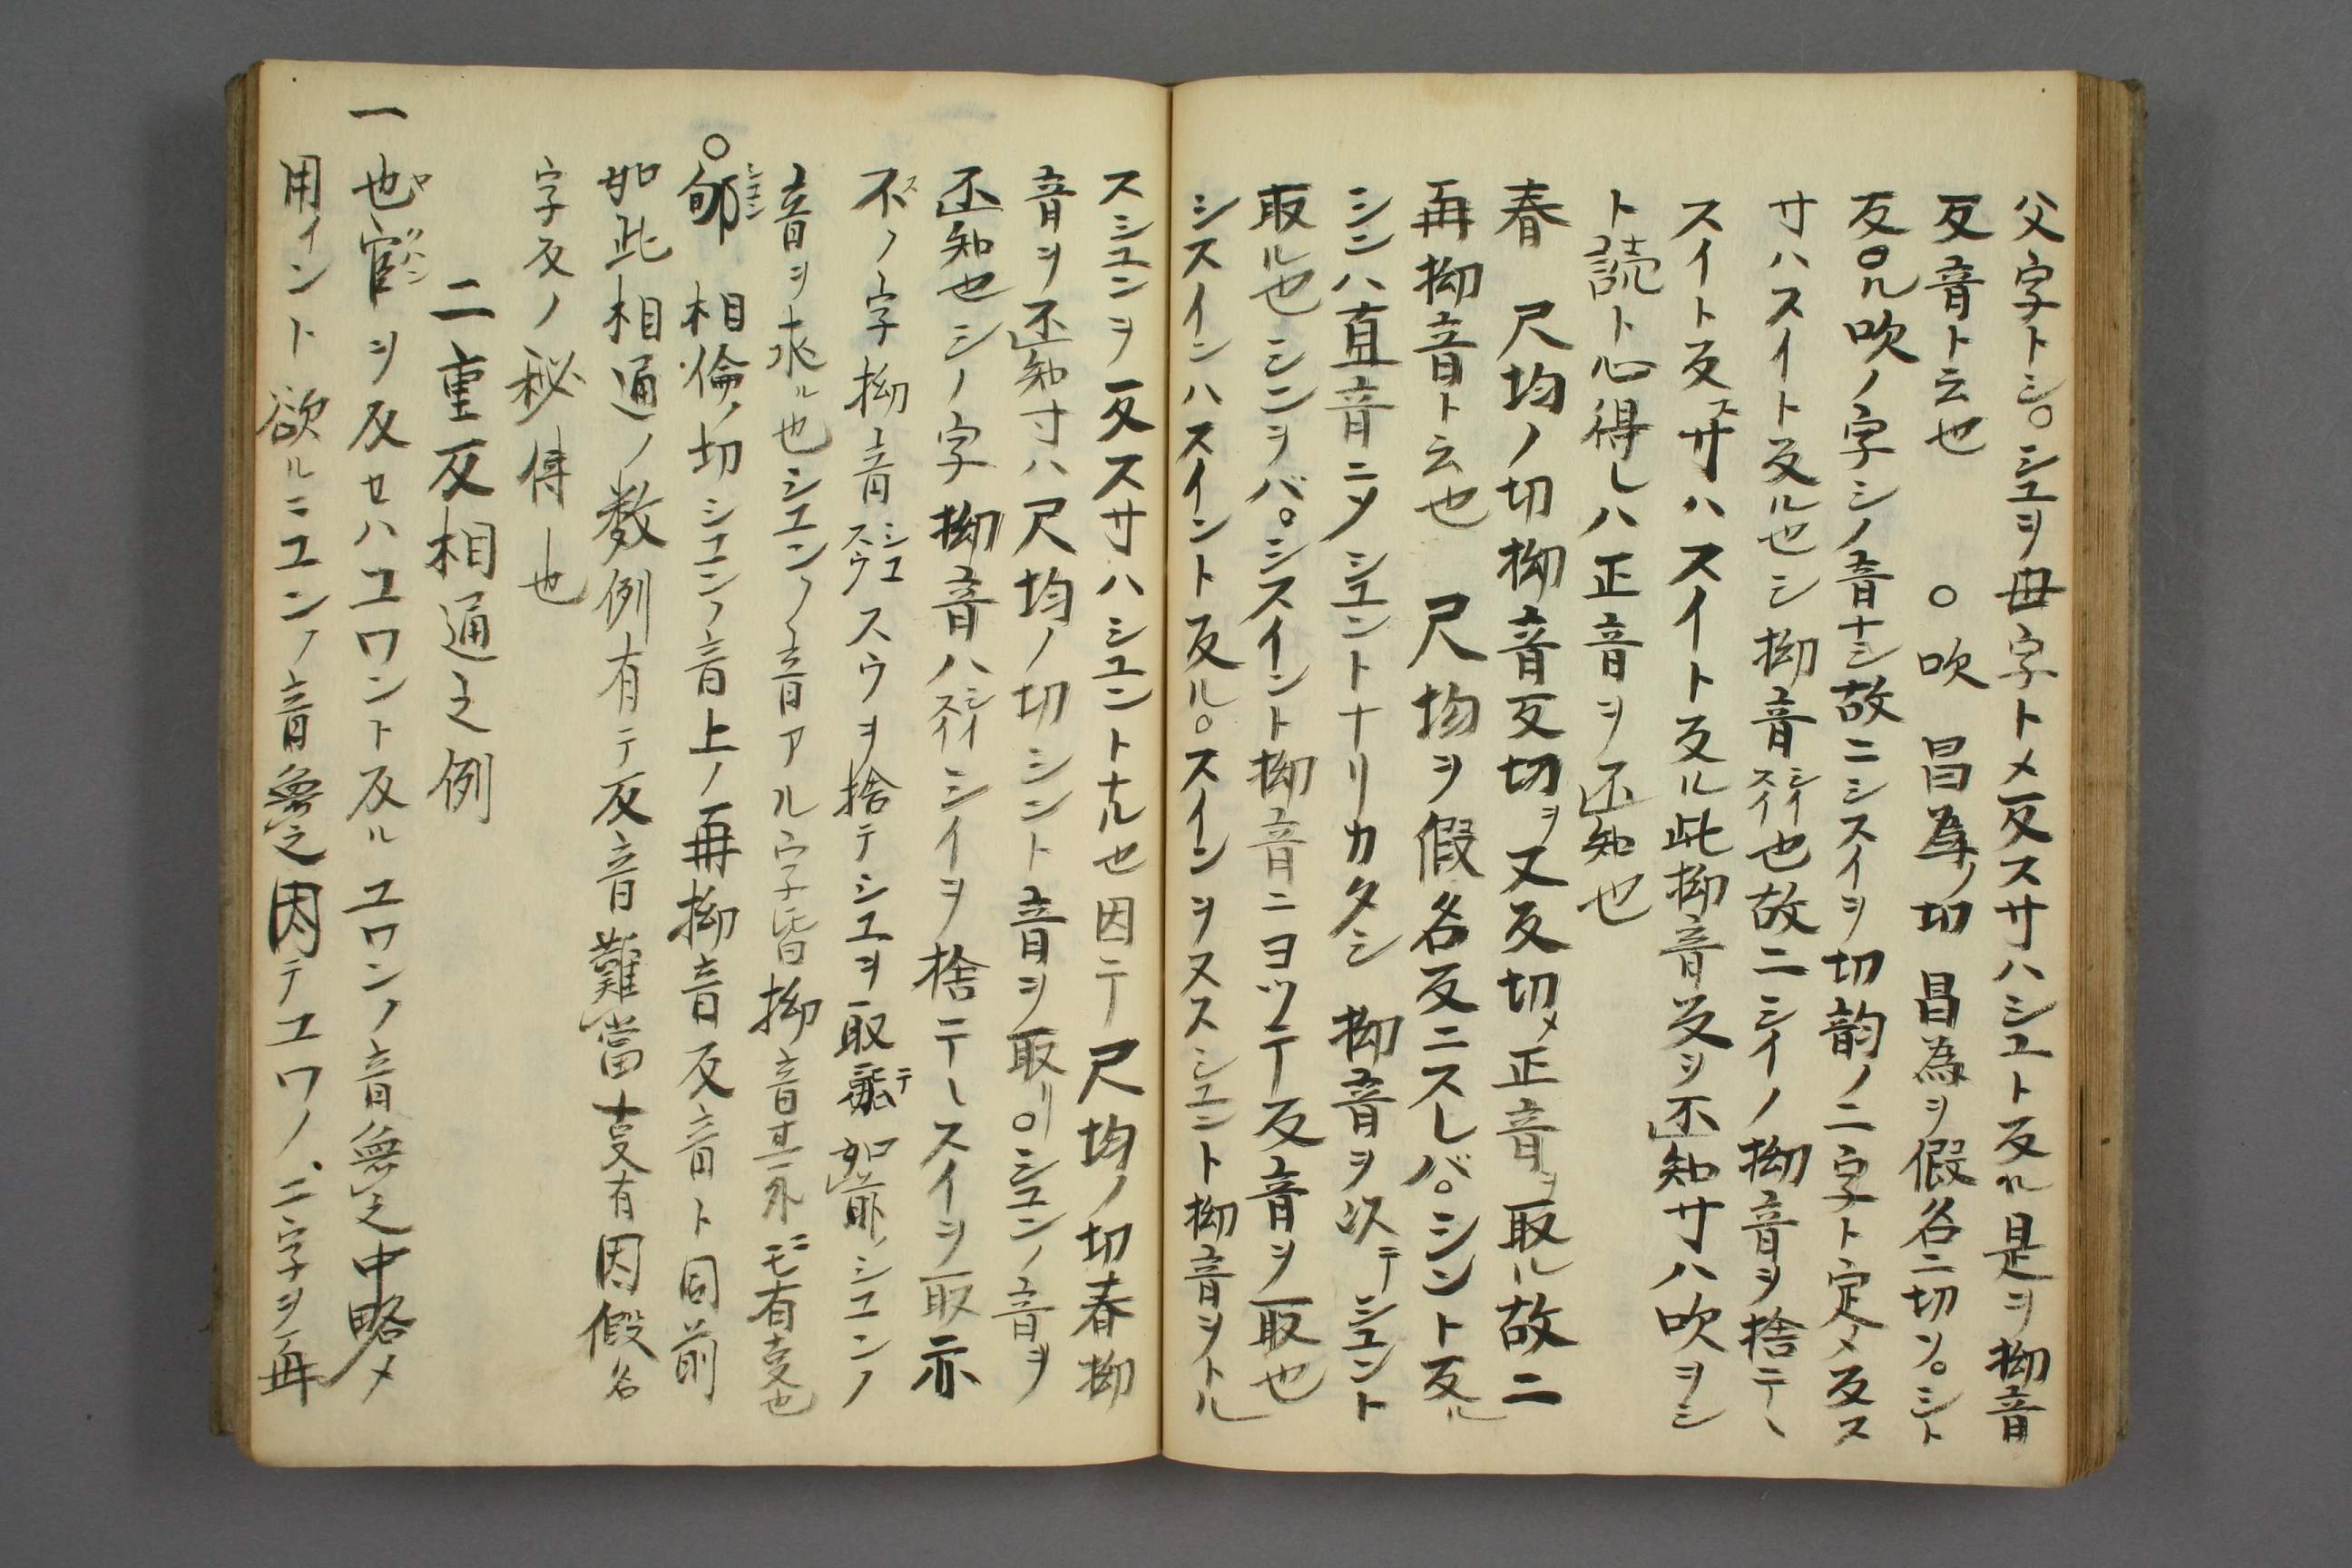 父字トシ。シユヲ母字トメ反スサハシユト反ル是ヲ拗音
反音ト云也　○吹　昌為ノ切　昌為ヲ假名ニ切ソ。シト
反○ル吹ノ字シノ音ナシ故ニシスイヲ切韵ノ二字ト定メ反ス
サハスイト反ル也シ拗音シイスイ也故ニシイノ拗音ヲ捨テヽ
スイト反スサハスイト反ル此拗音反ヲ不知サハ吹ヲシ
ト読ト心得レハ正音ヲ不知也
春　尺均ノ切拗音反切ヲ又反切メ正音ヲ取ル故ニ
再拗音ト云也　尺均ヲ假名反ニスレバ。シント反ル
シンハ直音ニメシユントナリカタシ　拗音ヲ以テシユント
取ル也シンヲバ。シスイント拗音ニヨツテ反音ヲ取也
シスインハスイント反ル。スインヲスシユント拗音ヲトル
スシユンヲ反スサハシユントナル也因テ尺均ノ切春拗
音ヲ不知サハ尺均ノ切シント音ヲ取リ。シユンノ音ヲ
不知也シノ字拗音ハシイスイシイヲ捨テヽスイヲ取亦
スノ字拗音シユスウスウヲ捨テシユヲ取テ如前ノシユンノ
音ヲ求ル也シユンノ音アル字皆拗音其外ニモ有叓也
○郇シユン　相倫ノ切シユンノ音上ノ再拗音反音ト同前
如此相通ノ数例有テ反音難當叓有因假名
字反ノ秘傳也
二重反相通之例
一也ヤ官クハンヲ反セハユワント反ルユワンノ音無之中略メ
用イント欲ルニユンノ音無之因テユワノ二字ヲ再